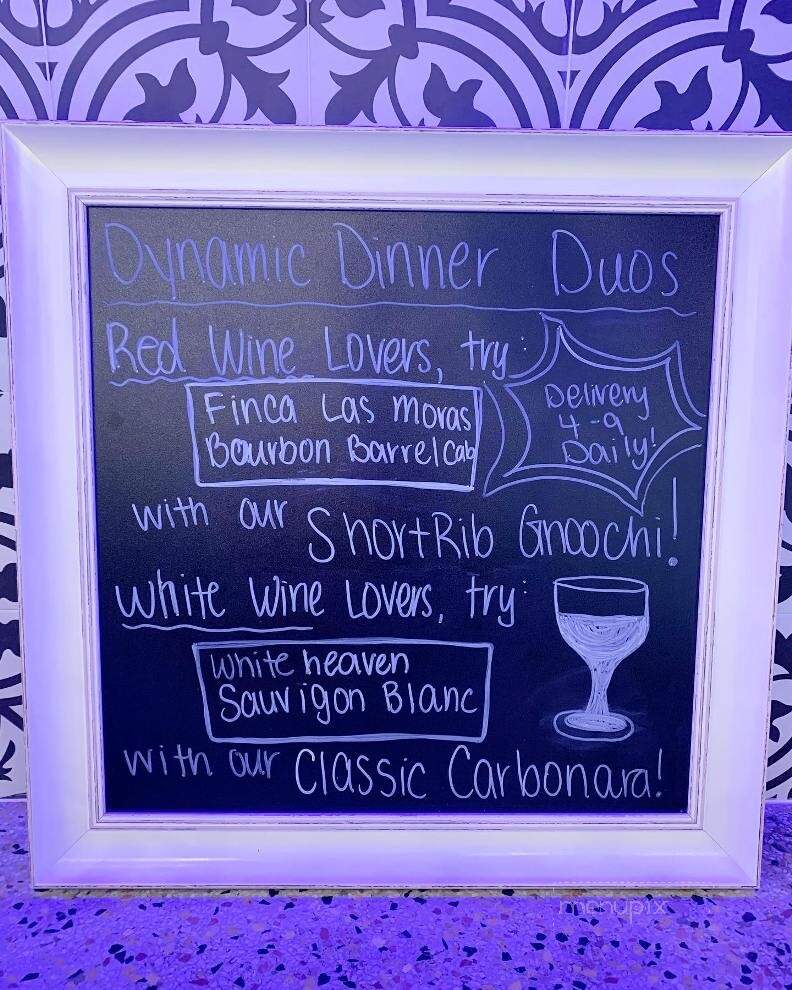 Dynamic Dinner Duos
Red Wine Lovers, try:
Finca Las Moras
Bourbon Barrel Cab
Delivery
4-9
Daily!
with our Short Rib Gnoochi!
White Wine Lovers, try:
White heaven
Sauvigon Blanc
with our Classic Carbonara!
menupix